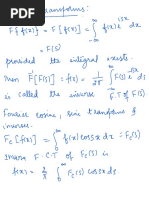 Transforms:
F{f(x)} = F[f(x)] = ∫_{-∞}^{∞} f(x) e^{isx} dx
= F(s)
provided the integral exists.
Then F^{-1}[F(s)] = f(x) = 1/2π ∫_{-∞}^{∞} F(s) e^{-isx} ds
is called the inverse F.T of F(s)
Fourier cosine, sine transforms &
inverses.
F_c[f(x)] = ∫_0^∞ f(x) cos sx dx = F_c(s)
Inverse F.C.T of F_c(s) is
f(x) = 2/π ∫_0^∞ F_c(s) cos sx ds